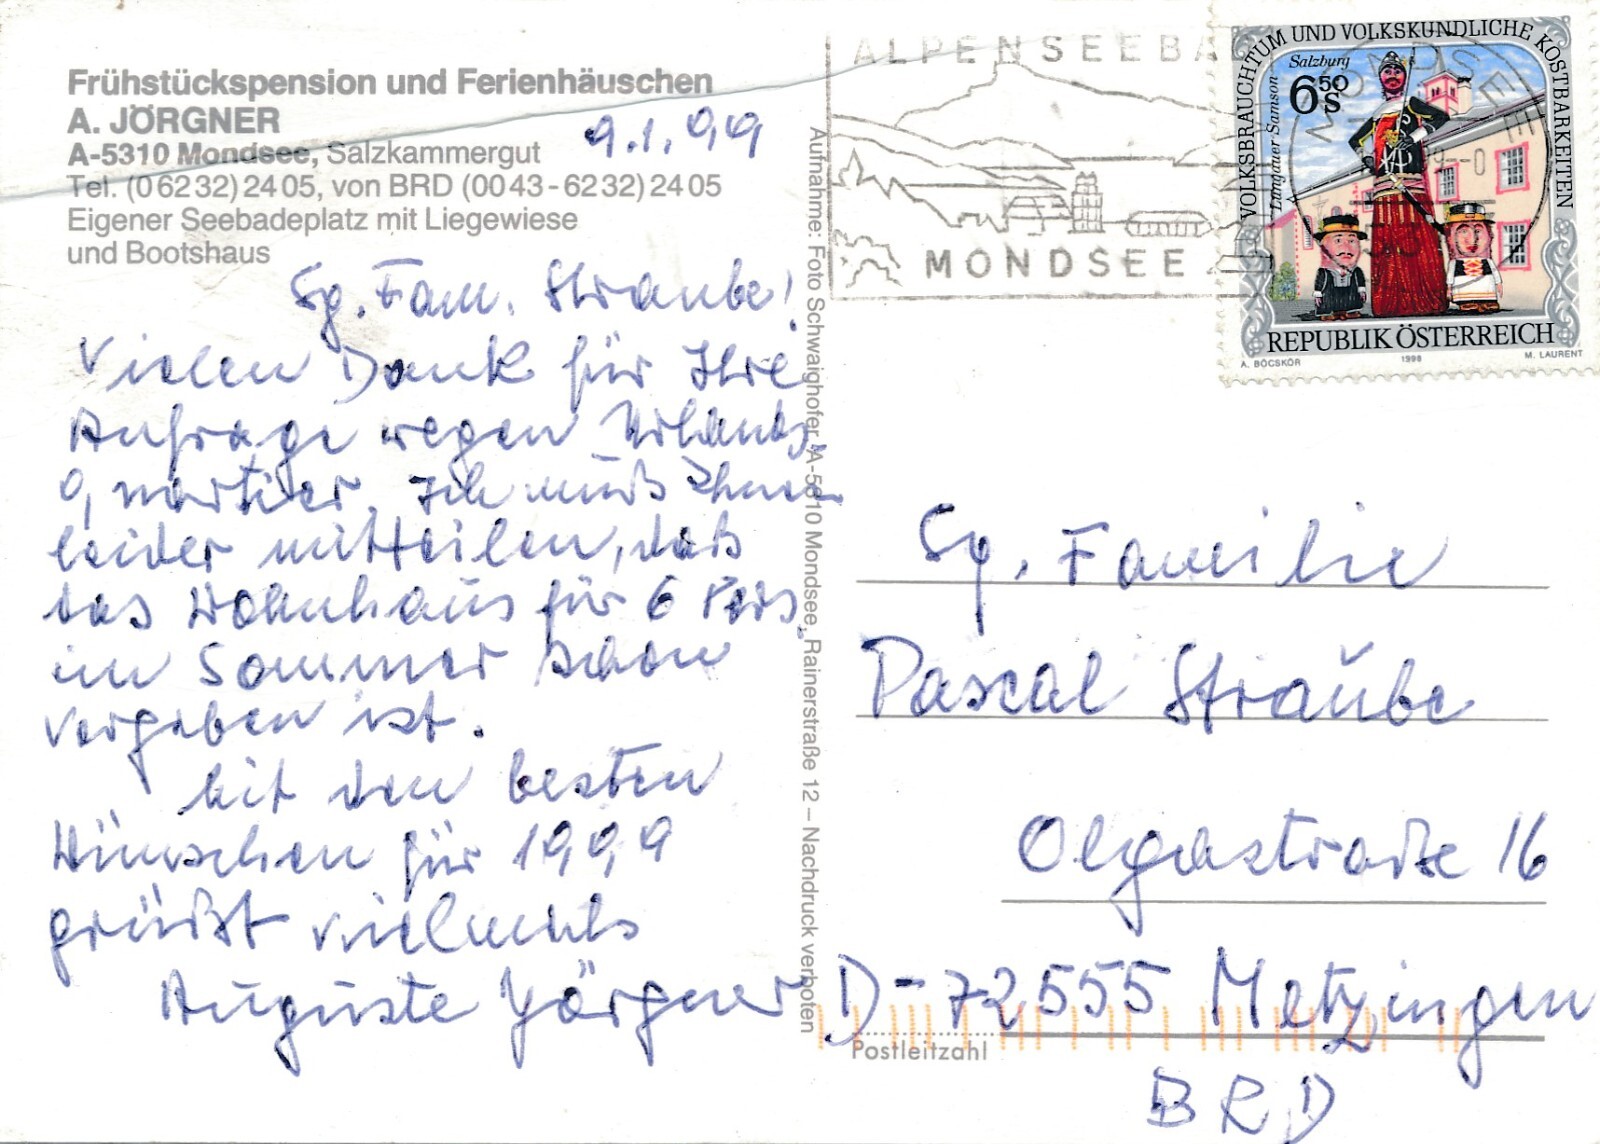 Frühstückspension und Ferienhäuschen
A. JÖRGNER
A-5310 Mondsee, Salzkammergut
Tel. (0 62 32) 24 05, von BRD (00 43 - 62 32) 24 05
Eigener Seebadeplatz mit Liegewiese
und Bootshaus
9.1.99
Sg. Fam. Straube!
Vielen Dank für Ihre
Anfrage wegen Urlaubs-
quartier. Ich muß Ihnen
leider mitteilen, daß
das Wohnhaus für 6 Pers.
im Sommer schon
vergeben ist.
Mit den besten
Wünschen für 1999
grüßt vielmals
Auguste Jörgner
Aufnahme: Foto Schwaighofer, A-5310 Mondsee, Rainerstraße 12 – Nachdruck verboten
ALPENSEEBA
MONDSEE
MONDSEE
VOLKSBRAUCHTUM UND VOLKSKUNDLICHE KOSTBARKEITEN
Salzburg
6 50 S
Lungauer Samson
REPUBLIK ÖSTERREICH
A. BÖCSKÖR 1998 M. LAURENT
Sg. Familie
Pascal Straube
Olgastraße 16
D-72555 Metzingen
Postleitzahl
BRD